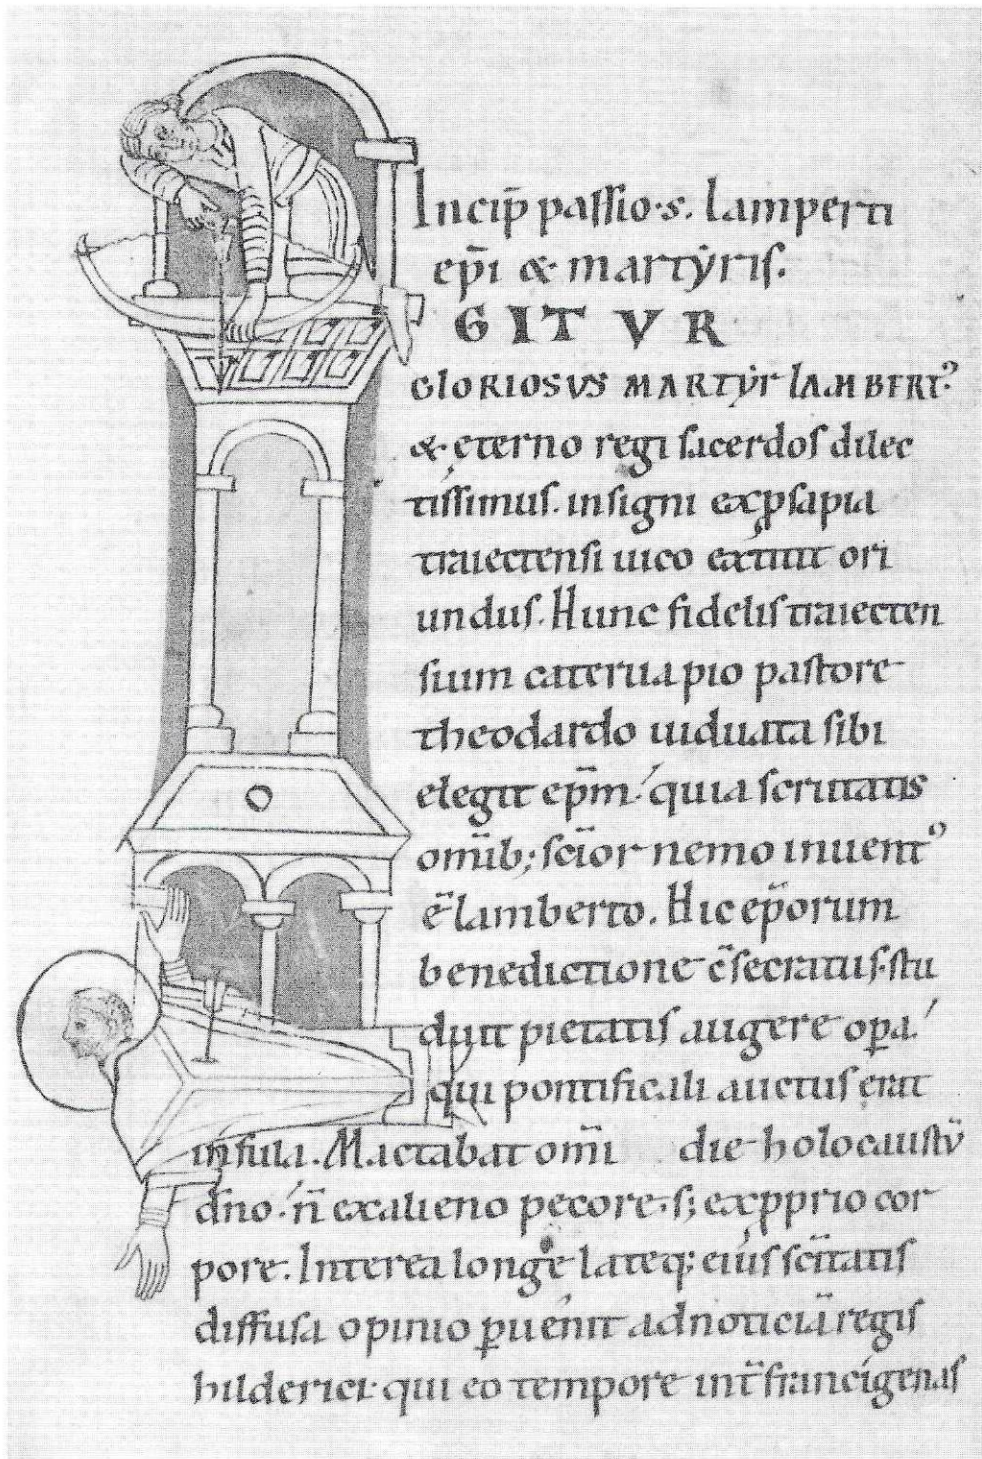 Incip̄ passio·s. lamperti
ep̄i & martẏris.
GITVR
GLORIOSVS MARTẏr lAMBERTꝰ
& eterno regi sacerdos dilec
tissimus. insigni exꝓsapia
traiectensi uico extitit ori
undus. Hunc fidelis traiecten
sium caterua pio pastore
theodardo uiduata sibi
elegit ep̄m. quia scrutatis
omīb; sc̄ior nemo inuentꝰ
ē lamberto. Hic ep̄orum
benedictione c̄secratus. stu
duit pietatis augere oꝑa.
qui pontificali auctus erat
infula. Mactabat om̄i die holocaustū
dn̄o. n̄ ex alieno pecore. s; exꝓprio cor
pore. Interea longe lateq; eius sc̄itatis
diffusa opinio ꝑuenit ad noticiā regis
hilderici. qui eo tempore int̄ francigenas